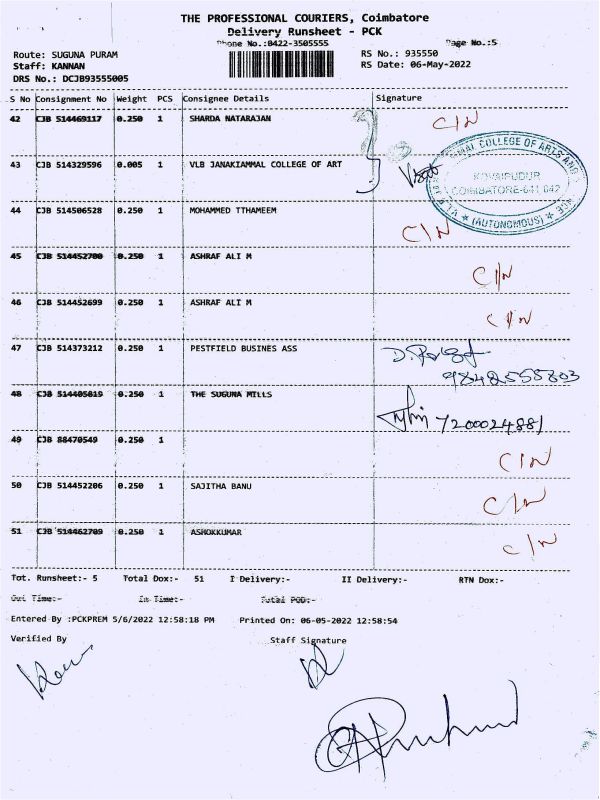 THE PROFESSIONAL COURIERS, Coimbatore
Delivery Runsheet - PCK
Phone No.:0422-3505555
Page No.:5
Route: SUGUNA PURAM
RS No.: 935550
Staff: KANNAN
RS Date: 06-May-2022
DRS No.: DCJB93555005
S No Consignment No Weight PCS Consignee Details Signature
42 CJB 514469117 0.250 1 SHARDA NATARAJAN C/N
43 CJB 514329596 0.005 1 VLB JANAKIAMMAL COLLEGE OF ART
COLLEGE OF ARTS AND
KOVAIPUDUR
COIMBATORE-641 042
★ (AUTONOMOUS) ★
44 CJB 514506528 0.250 1 MOHAMMED TTHAMEEM C/N
45 CJB 514452700 0.250 1 ASHRAF ALI M C/N
46 CJB 514452699 0.250 1 ASHRAF ALI M C/N
47 CJB 514373212 0.250 1 PESTFIELD BUSINES ASS
9842555803
48 CJB 514405019 0.250 1 THE SUGUNA MILLS
7200024881
49 CJB 88470549 0.250 1 C/N
50 CJB 514452206 0.250 1 SAJITHA BANU C/N
51 CJB 514462709 0.250 1 ASHOKKUMAR C/N
Tot. Runsheet:- 5 Total Dox:- 51 I Delivery:- II Delivery:- RTN Dox:-
Out Time:- In Time:- Total POD:-
Entered By :PCKPREM 5/6/2022 12:58:18 PM Printed On: 06-05-2022 12:58:54
Verified By Staff Signature